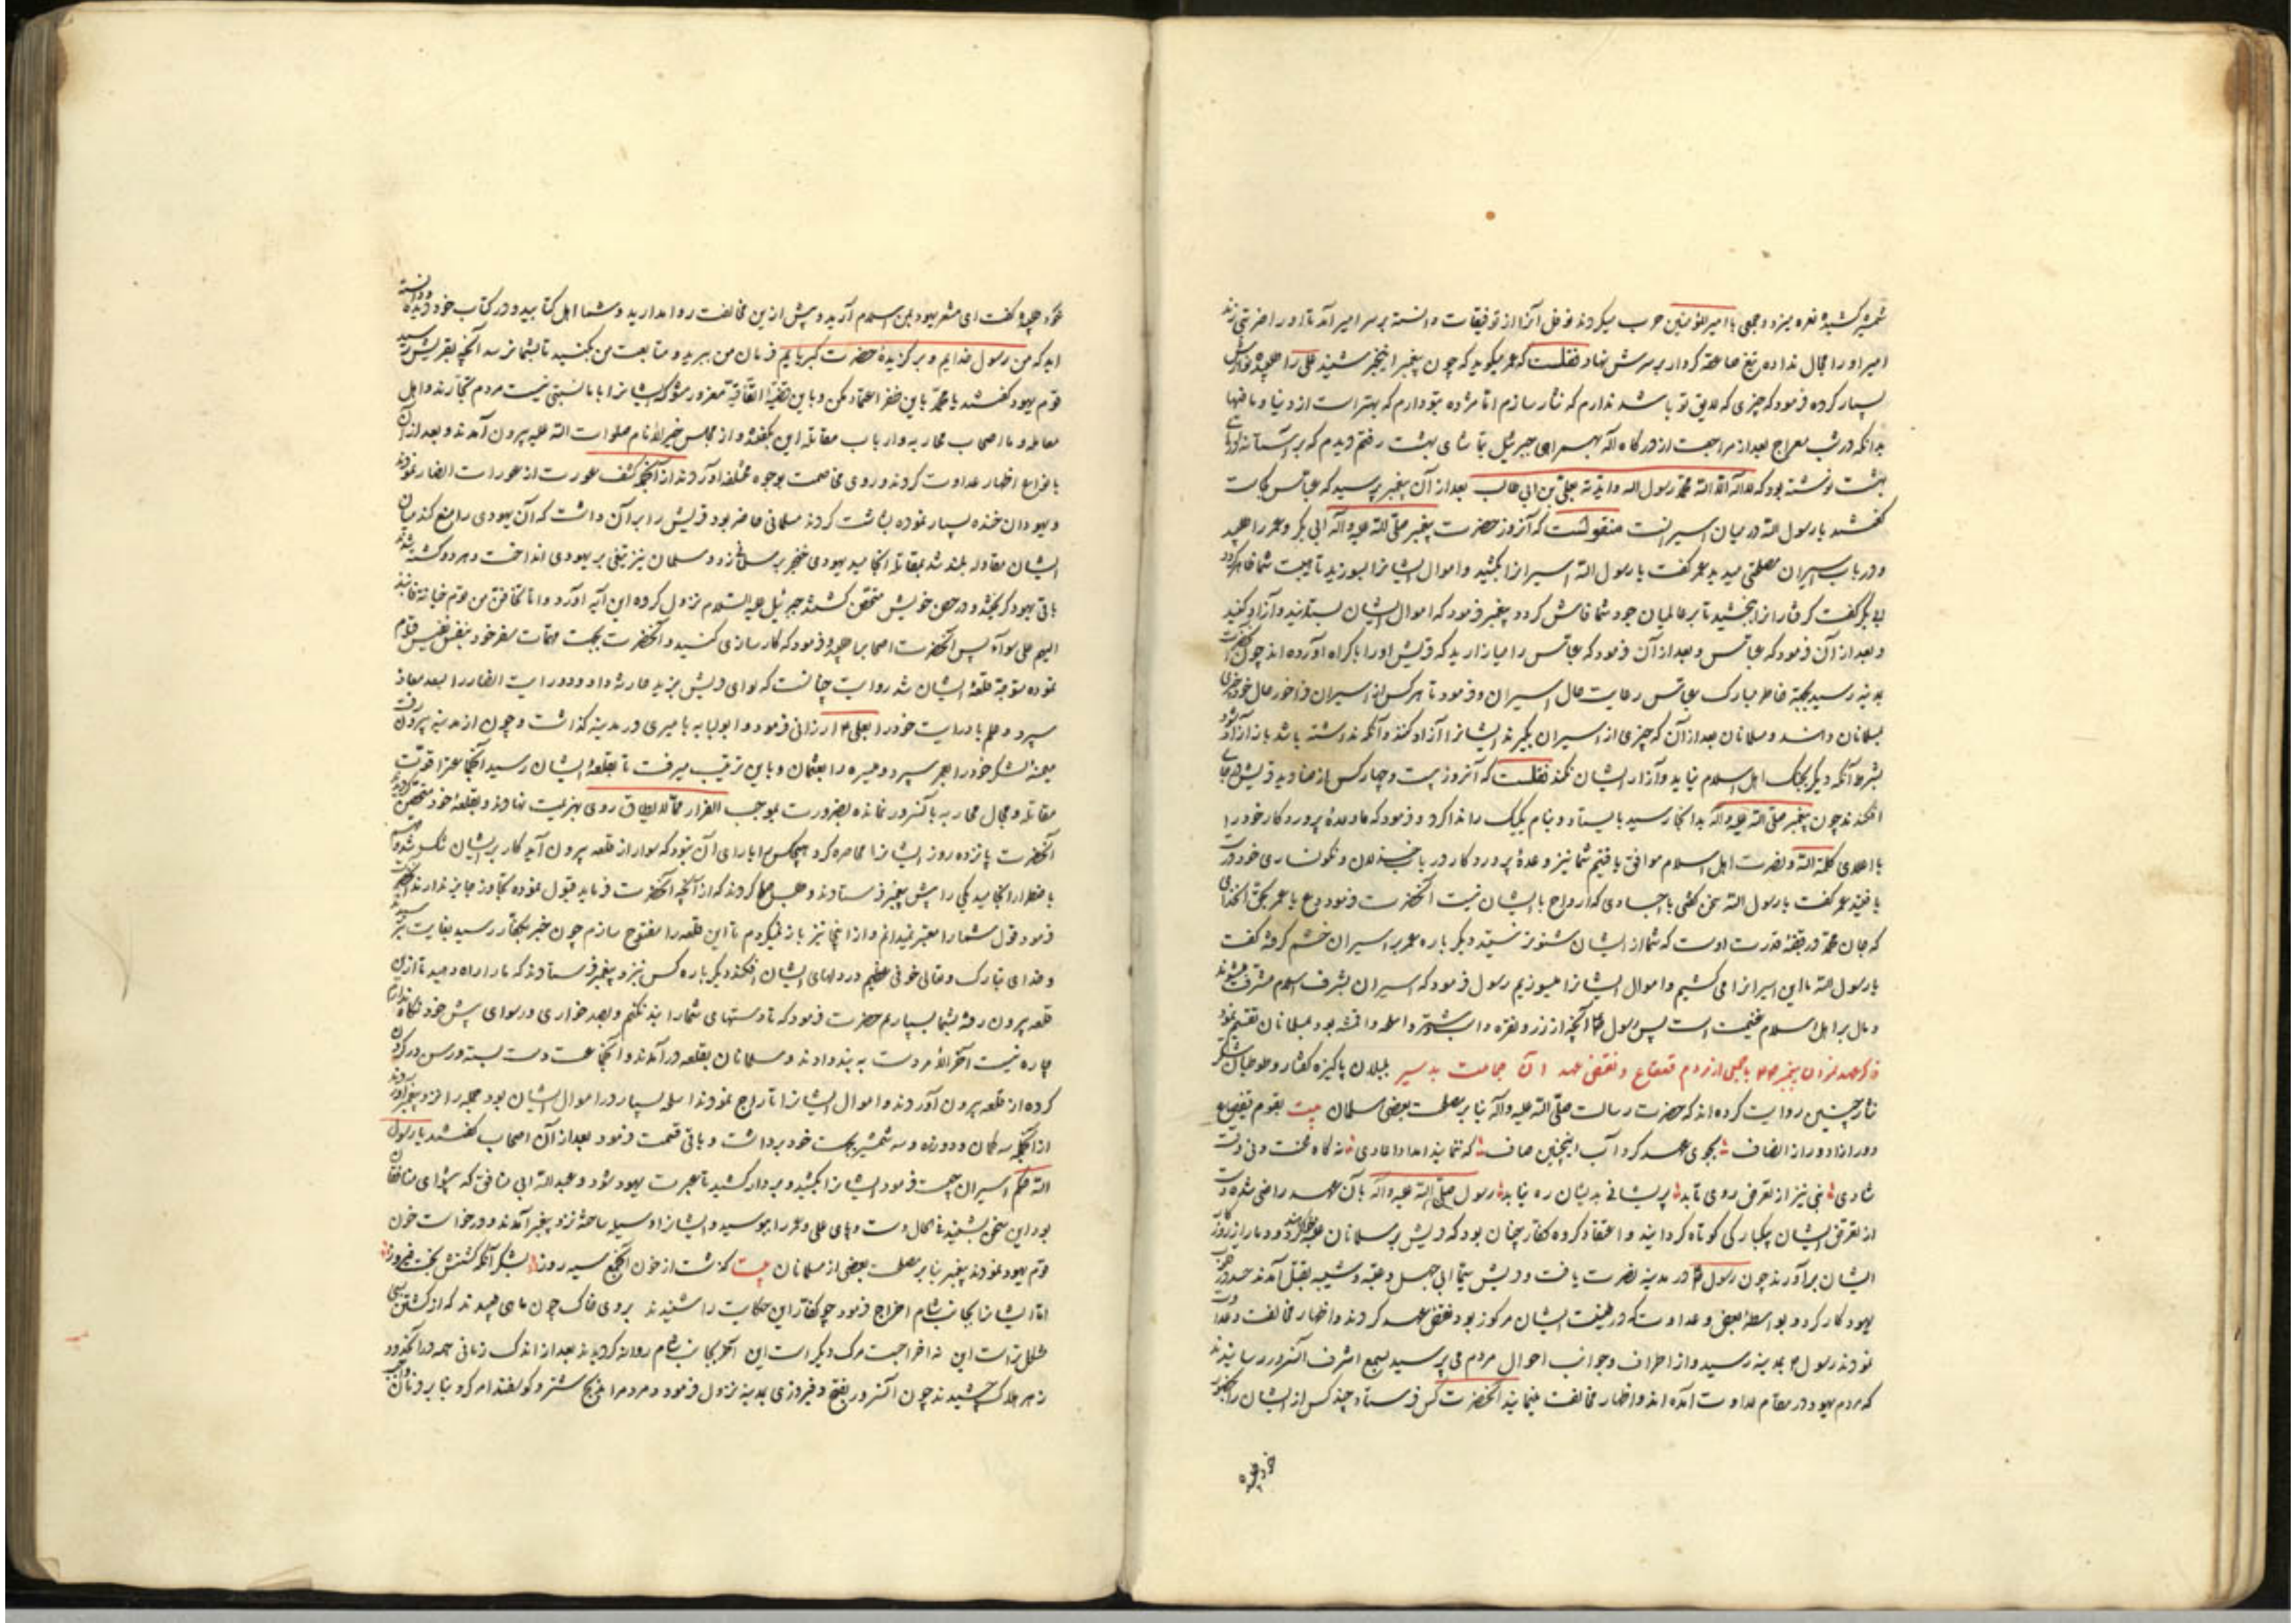 شمشیر کشیده نعره میزد و جمعی با امیرالمؤمنین حرب میکردند نوفل آنرا از توفیقات دانسته بر سر امیر آمد تا او را ضربتی زند
امیر او را مجال نداده تیغ صاعقه کردار بر سرش نهاد نقلست که عمر میکوید که چون پیغمبر اینخبر شنید علی را طلبیده نوازش
بسیار کرده فرمود که چیزی که لایق تو باشد ندارم که نثار سازم اما مژده بتو دارم که بهتر است از دنیا و مافیها
بدانکه در شب معراج بعد از مراجعت از درکاه اله بهمراهی جبرئیل بتماشای بهشت رفتم دیدم که بر آستانه
بهشت نوشته بود که لا اله الا الله محمد رسول الله وایدته بعلی بن ابی طالب بعد از آن پیغمبر پرسید که عباس کجاست
کفتند یا رسول الله در میان اسیرانست منقولست که آنروز حضرت پیغمبر صلی الله علیه وآله ابی بکر و عمر را طلبید
و در باب اسیران مصلحتی میدید عمر کفت یا رسول الله اسیرانرا بکشید و اموال ایشانرا بسوزید تا هیبت شما ظاهر کردد
ابوبکر کفت کرفتارانرا ببخشید تا بر عالمیان جود شما فاش کردد پیغمبر فرمود که اموال ایشان بستانید و آزاد کنید
و بعد از آن فرمود که عباس را میازارید که قریش او را باکراه آورده اند چون آنحضرت
بمدینه رسید بجهة خاطر مبارک عباس رعایت حال اسیران و فرمود تا هر کس از اسیران فراخور حال خود چیزی
بمسلمانان دادند و مسلمانان بعد از آن که چیزی از اسیران بکیرند ایشانرا آزاد کنند و آنکه نداشته باشد باز آزاد شود
بشرط آنکه دیکر بجنک اهل اسلام نیاید و آزار ایشان نکند نقلست که آنروز بیست و چهار کس از صنادید قریش را بچاهی
افکندند چون پیغمبر صلی الله علیه وآله بدانجا رسید بایستاد و بنام یک یک را ندا کرد و فرمود که ما وعدهٔ پروردکار خود را
با اعلای کلمة الله و نصرت اهل اسلام موافق یافتیم شما نیز وعدهٔ پروردکار در باب خذلان و نکونساری خود درست
یافتید عمر کفت یا رسول الله سخن کنی با اجسادی که ارواح با ایشان نیست آنحضرت فرمود دع یا عمر بحق آنخدای
که جان محمد در قبضهٔ قدرت اوست که شما از ایشان شنونده تر نیستید دیکر باره عمر بر اسیران خشم کرفته کفت
یا رسول الله ما این اسیرانرا می کشیم و اموال ایشانرا میسوزیم رسول فرمود که اسیران بشرف اسلام مشرف میشوند
و مال بر اهل اسلام غنیمت است پس رسول آنچه از زر و نقره و اسب و شتر و اسلحه و اقمشه بود بمسلمانان تقسیم نمود
ذکر عهد کردن پیغمبر با جمعی از مردم قینقاع و نقض عهد آن جماعت بد سیر بلبلان پاکیزه کفتار و طوطیان شکر
نثار چنین روایت کرده اند که حضرت رسالت صلی الله علیه وآله بنا بر مصلحت بعضی مسلمان بیت بقوم قینقاع
دور از داد و دور از انصاف بجوی عهد کرد آب اینچنین صاف که ننمایند امداد اعادی نه کاه محنت و نی وقت
شادی نبی نیز از تعرض روی تابد پریشانی بدیشان ره نیابد رسول صلی الله علیه وآله بآن عهد راضی شده دست
از تعرض ایشان بیکبارکی کوتاه کردانید و اعتقاد کروه کفار چنان بود که قریش بر مسلمانان غلبه خواهند کرد و دمار از روزکار
ایشان برآورند چون رسول در مدینه نصرت یافت و قریش سیما ابی جهل و عتبه و شیبه بقتل آمدند حسد در حق
یهود کار کرد و بواسطهٔ بغض و عداوت که در طینت ایشان مرکوز بود نقض عهد کردند و اظهار مخالفت و عداوت
نمودند رسول بمدینه رسید و از اطراف و جوانب احوال مردم می پرسید بسمع اشرف آنسرور رسانیدند
که مردم یهود در مقام عداوت آمده اند و اظهار مخالفت مینمایند آنحضرت کس فرستاد چند کس از ایشان را بحضور
خود طلبیده
خود طلبیده کفت ای معشر یهود بدین اسلام آرید و پیش ازین مخالفت روا مدارید و شما اهل کتابید و در کتاب خود دیده و دانسته
اید که من رسول خدایم و برکزیدهٔ حضرت کبریایم فرمان من ببرید و متابعت من بکنید تا بشما نرسد آنچه بقریش رسید
قوم یهود کفتند یا محمد باین ظفر اعتماد مکن و باین قضیهٔ اتفاقیه مغرور مشو که ایشانرا با ما نسبتی نیست مردم تجارند و اهل
معامله و ما اصحاب محاربه و ارباب مقاتله این بکفتند و از مجلس خیرالانام صلوات الله علیه بیرون آمدند و بعد از آن
بانواع اظهار عداوت کردند و روی مخاصمت بوجوه مختلفه آوردند از آنجمله کشف عورت از عورات انصار نمودند
و یهودان خنده بسیار نموده بشاشت کردند مسلمانی حاضر بود قریش را بر آن داشت که آن یهودی را منع کند میان
ایشان مقاوله بلند شد بمقاتله انجامید یهودی خنجر بر مسلمان زد و مسلمان نیز تیغی بر یهودی انداخت و هر دو کشته شدند
باقی یهود کریختند و در حصن خویش متحصن کشتند جبرئیل علیه السلام نزول کرده این آیه آورد واما تخافن من قوم خیانة فانبذ
الیهم علی سواء پس آنحضرت اصحابرا طلبیده فرمود که کارسازی کنید و آنحضرت بجهت مهمات سفر خود بنفس نفیس قیام
نموده متوجه قلعهٔ ایشان شد روایت چنانست که لوای قریش بزید حارثه داد و رایت انصار را بسعد معاذ
سپرد و علم با رایت خود را بعلی ارزانی فرمود و ابولبابه بامیری در مدینه کذاشت و چون از مدینه بیرون رفت
میمنهٔ لشکر خود را بعمر سپرد و میسره را بعثمان و باین ترتیب میرفت تا بقلعهٔ ایشان رسید آنجماعترا قوت
مقاتله و مجال محاربه با آنسرور نمانده بضرورت بموجب الفرار مما لایطاق روی بهزیمت نهادند و بقلعهٔ خود متحصن کردیدند
آنحضرت پانزده روز ایشانرا محاصره کرد هیچکس را یارای آن نبود که سوار از قلعه بیرون آید کار بر ایشان تنک شد مهم
باضطرار انجامید یکی را پیش پیغمبر فرستادند و طلب صلح کردند که از آنچه آنحضرت فرماید قبول نموده تجاوز جایز ندارند آنحضرت
فرمود قول شما را معتبر نمیدانم و از اینجا نیز باز نمیکردم تا این قلعه را مفتوح سازم چون خبر بکفار رسید بغایت بترسیدند
و خدای تبارک و تعالی خوفی عظیم در دلهای ایشان افکند دیکر باره کس نزد پیغمبر فرستادند که ما را راه دهید تا ازین
قلعه بیرون رفته بشما بسپاریم حضرت فرمود که تا دستهای شما را بند نکنم و بصد خواری و رسوایی پیش خود نکاه ندارم
چاره نیست آخر الامر دست به بند دادند و مسلمانان بقلعه درآمدند و آنجماعت دست بسته و رسن در کردن
کرده از قلعه بیرون آوردند و اموال ایشانرا تاراج نمودند اسلحه بسیار در اموال ایشان بود جمله را نزد پیغمبر آوردند
از آنجمله سه کمان و دو زره و سه شمشیر بجهت خود برداشت و باقی قسمت فرمود بعد از آن اصحاب کفتند یا رسول
الله حکم اسیران چیست فرمود ایشانرا بکشید و بردار کشید تا عبرت یهود شود و عبدالله ابی منافق که پیشوای منافقان
بود این سخن بشنید فی الحال دست و پای علی و عمر را ببوسید و ایشانرا وسیله ساخته نزد پیغمبر آمدند و درخواست خون
قوم یهود نمودند پیغمبر بنا بر مصلحت بعضی از مسلمانان بیت کذشت از خون آنجمع سیه روز بشکر آنکه کشتش بخت فیروز
اما ایشانرا بجانب شام اخراج فرمود چو کفار این حکایت را شنیدند بروی خاک چون ماهی طپیدند که از کشتن بسی
مشکل تر است این نه اخراجست مرک دیکر است این آخر بجانب شام روانه کردیدند بعد از اندک زمانی همه در آنحدود
زهر هلاک چشیدند چون آنسرور بفتح و فیروزی بمدینه نزول فرمود و مردم را بذبح شتر و کوسفند امر کرد بنا بر فرمان